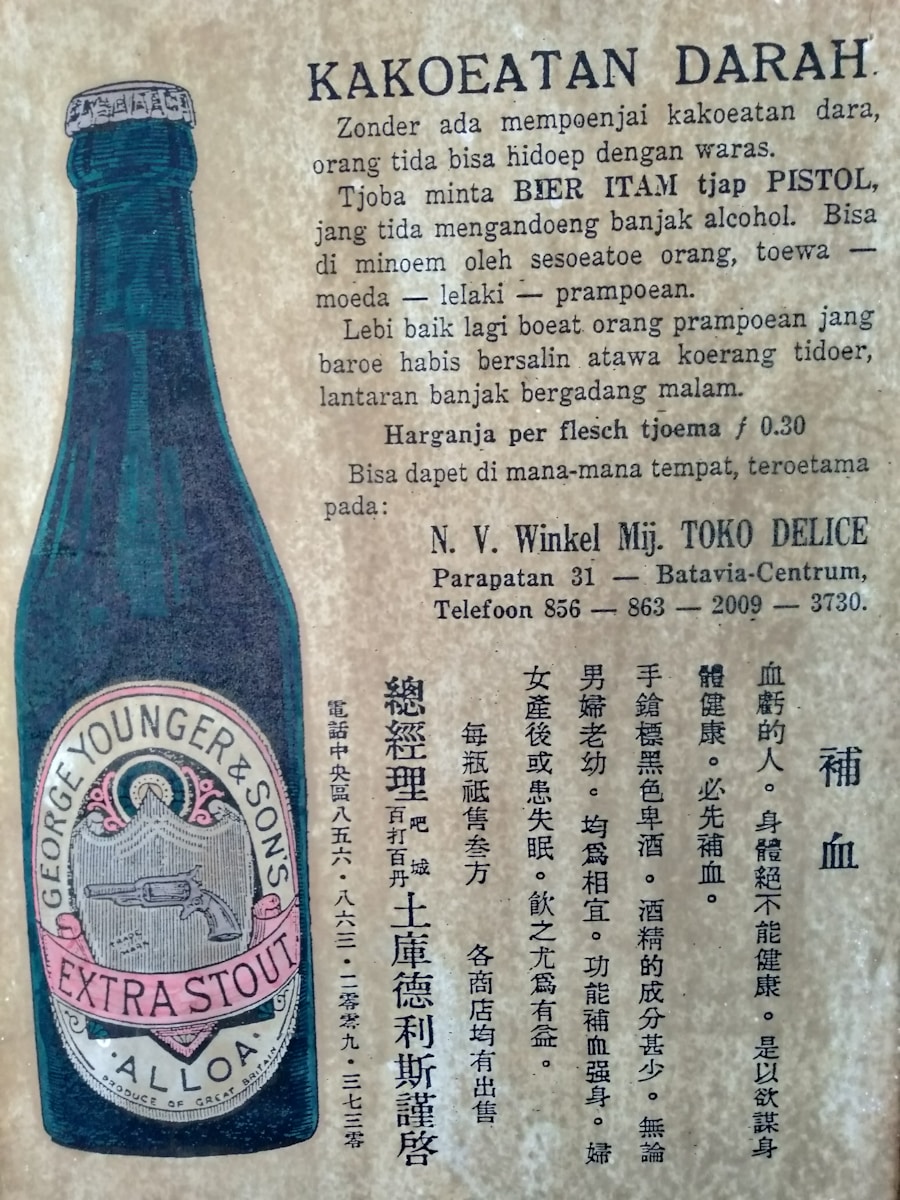 KAKOEATAN DARAH.
Zonder ada mempoenjai kakoeatan dara,
orang tida bisa hidoep dengan waras.
Tjoba minta BIER ITAM tjap PISTOL,
jang tida mengandoeng banjak alcohol. Bisa
di minoem oleh sesoeatoe orang, toewa —
moeda — lelaki — prampoean.
Lebi baik lagi boeat orang prampoean jang
baroe habis bersalin atawa koerang tidoer,
lantaran banjak bergadang malam.
Harganja per flesch tjoema ƒ 0.30
Bisa dapet di mana-mana tempat, teroetama
pada:
N. V. Winkel Mij. TOKO DELICE
Parapatan 31 — Batavia-Centrum,
Telefoon 856 — 863 — 2009 — 3730.
補血
血虧的人。身體絕不能健康。是以欲謀身
體健康。必先補血。
手鎗標黑色卑酒。酒精的成分甚少。無論
男婦老幼。均爲相宜。功能補血强身。婦
女產後或患失眠。飲之尤爲有益。
每瓶祗售叁方 各商店均有出售
總經理 吧城 百打百丹 土庫德利斯謹啓
電話中央區八五六・八六三・二零零九・三七三零
GEORGE YOUNGER & SON'S
TRADE
MARK
EXTRA STOUT
·ALLOA·
PRODUCE OF GREAT BRITAIN